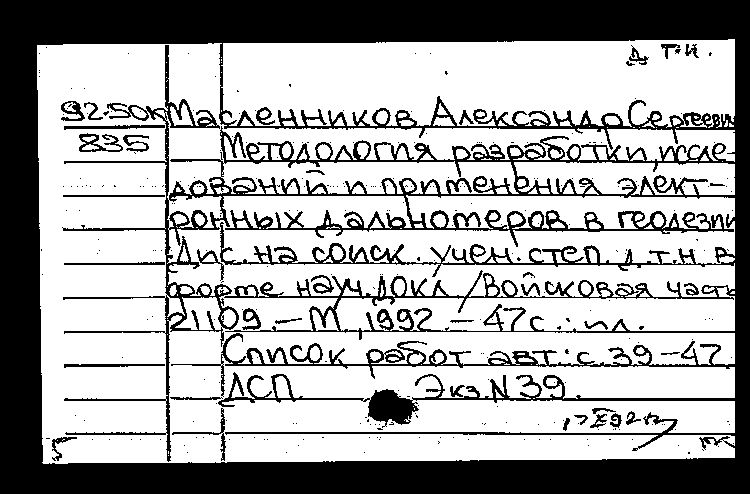 д т.н.
92-50к Масленников, Александр Сергеевич
835 Методология разработки, иссле-
дований и применения элект-
ронных дальномеров в геодезии
Дис. на соиск. учен. степ. д.т.н. в
форме науч. докл / Войсковая часть
21109. – М, 1992. – 47с.: ил.
Список работ авт.: с. 39-47.
ДСП. Экз. N 39.